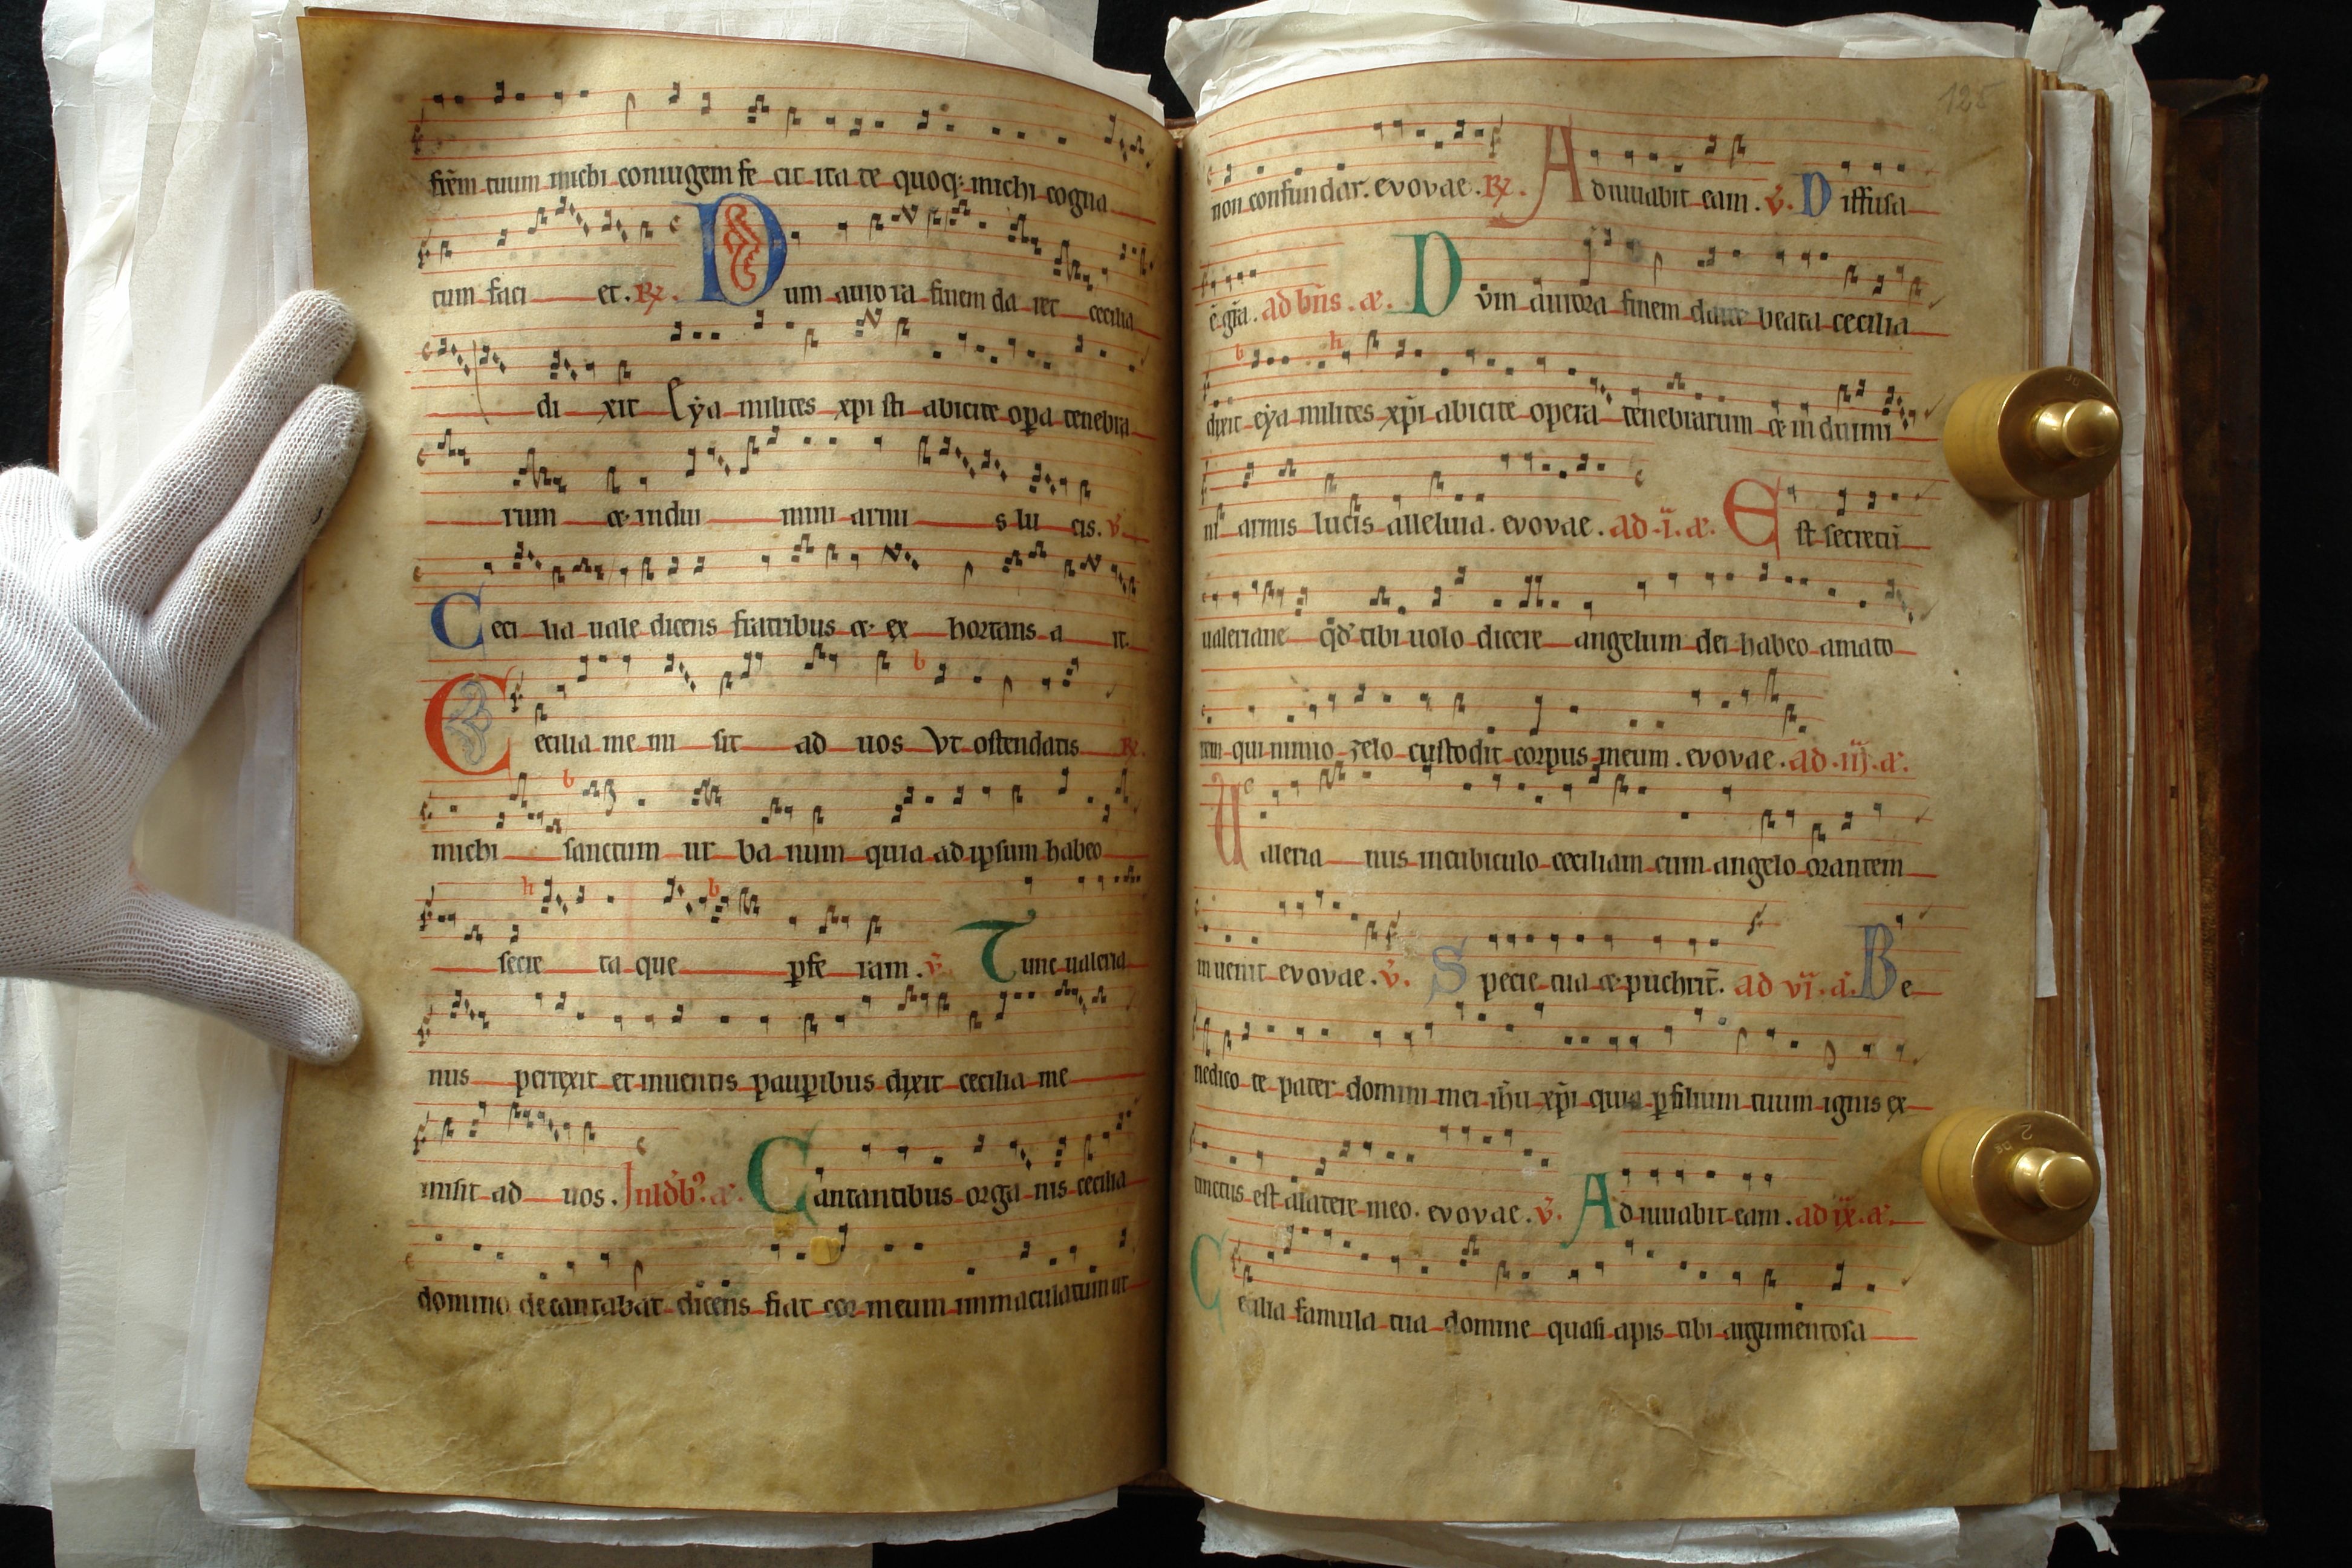 fr̄em tuum michi coniugem fe cit ita te quoq; michi cogna
tum faci et. R̸. Dum auro ra finem da ret cecilia
di xit Eẏa milites xpi sti abicite op̱a tenebra
rum & indui mini armi s lu cis. v̄
Ceci lia uale dicens fratribus & ex hortans a it.
Cecilia me mi sit ad uos Vt ostendatis R̸.
michi sanctum ur ba num quia ad ip̄sum habeo
secre ta que p̱fe ram. v̄ Tunc ualeria
nus perrexit et inuentis paup̱ibus dixit cecilia me
misit ad uos. Cantantibus orga nis cecilia
domino decantabat dicens fiat cor meum immaculatum ut
125
non confundar. evovae. R̸. Adiuuabit eam. v̄. Diffusa
ē gr̄a. ad bn̄s. æ. Dvm aurora finem daret beata cecilia
dixit eẏa milites xp̄i abicite opera tenebrarum & induimi
ni armis lucis alleluia. evovae. ad .i. æ. Est secretū
ualeriane qd̄ tibi uolo dicere angelum dei habeo amato
rem qui nimio zelo custodit corpus meum. evovae. ad .iij. æ.
Valeria nus in cubiculo ceciliam cum angelo orantem
inuenit evovae. v̄. Specie tua & puchrit̄. ad vi. a. Be
nedico te pater domini mei ih̄u xp̄i quia p̱ filium tuum ignis ex
tinctus est a latere meo. evovae. v̄. Adiuuabit eam. ad ix. æ.
Cecilia famula tua domine quasi apis tibi argumentosa